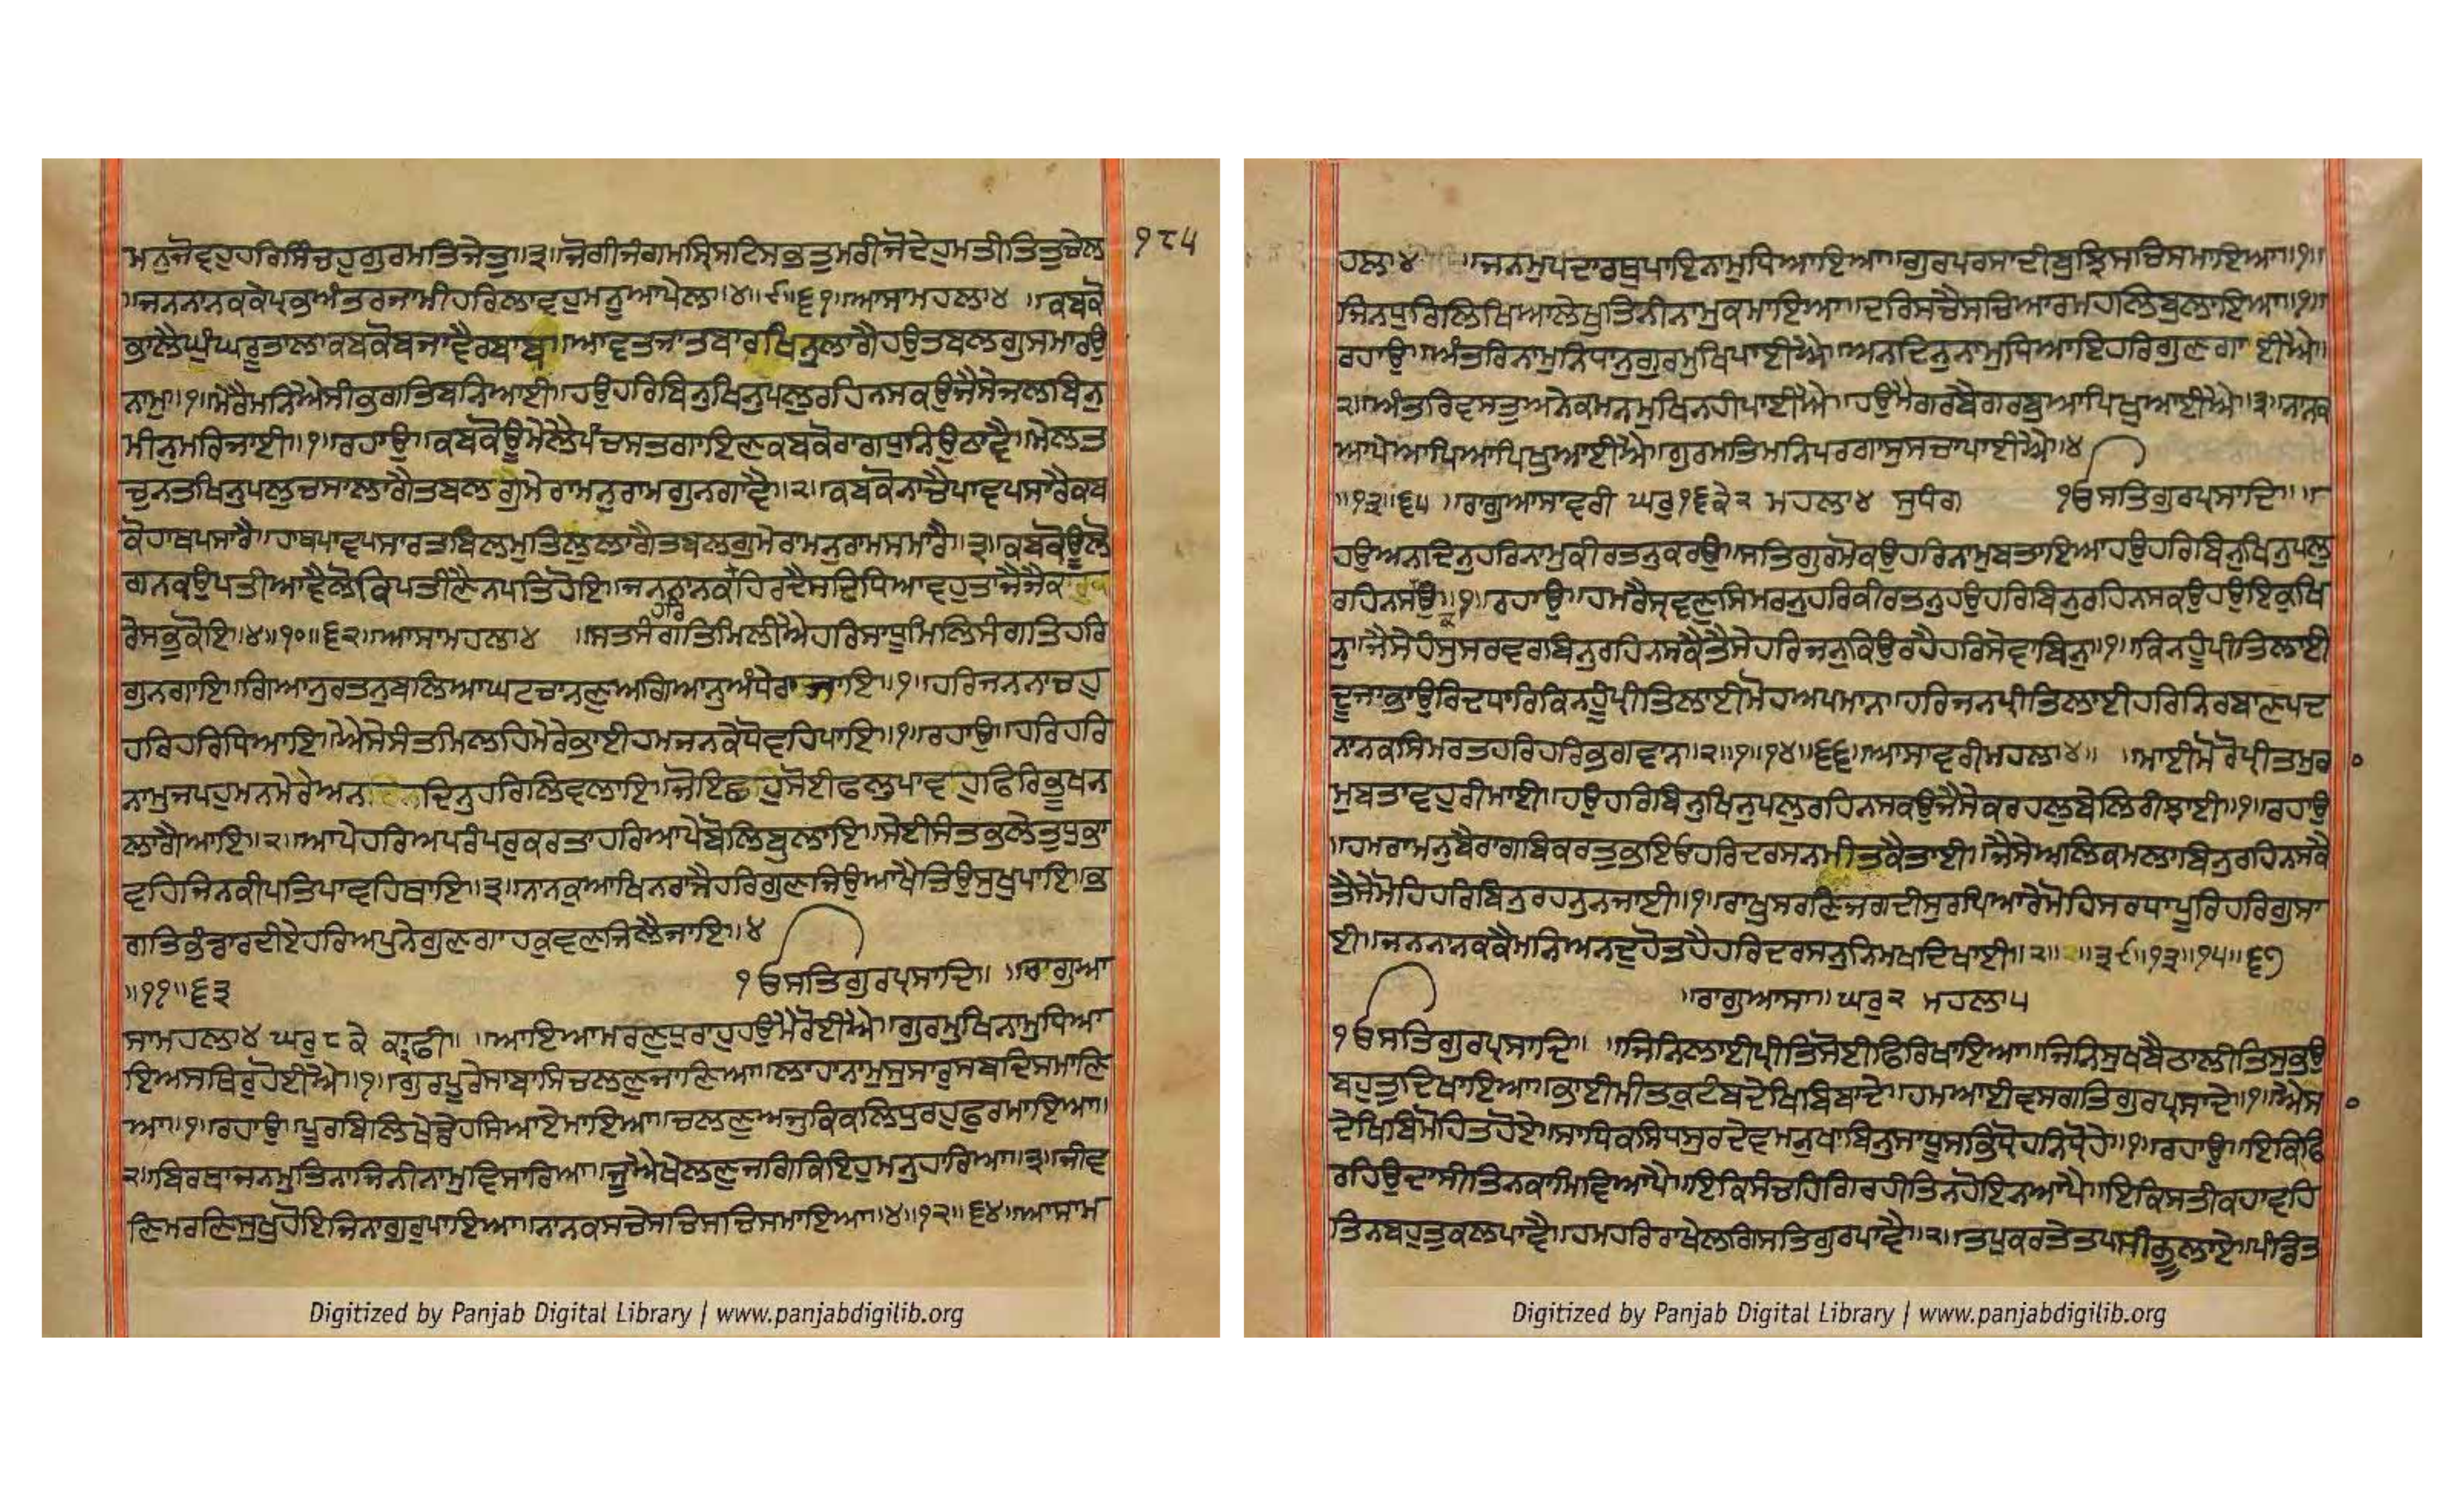 ਮਨੁਜੋਵਹੁਹਰਿਸਿੰਚਹੁਗੁਰਮਤਿਜੇਤੁ॥੩॥ਜੋਗੀਜੰਗਮਸ੍ਰਿਸਟਿਸਭਤੁਮਰੀਜੋਦੇਹੁਮਤੀਤਿਤੁਚੇਲ
੧੮੫
॥ਜਨਨਾਨਕਕੇਪ੍ਰਭਅੰਤਰਜਾਮੀਹਰਿਲਾਵਹੁਮਨੂਆਪੇਲ॥੪॥੯॥੬੧॥ਆਸਾਮਹਲਾ੪ ॥ਕਬਕੋ
ਭਾਲੈਘੁੰਘਰੂਤਾਲਾਕਬਕੋਬਜਾਵੈਰਬਾਬੁ॥ਆਵਤਜਾਤਬਾਰਖਿਨੁਲਾਗੈਹਉਤਬਲਗੁਸਮਾਰਉ
ਨਾਮੁ॥੧॥ਮੇਰੈਮਨਿਐਸੀਭਗਤਿਬਨਿਆਈ॥ਹਉਹਰਿਬਿਨੁਖਿਨੁਪਲੁਰਹਿਨਸਕਉਜੈਸੇਜਲਬਿਨੁ
ਮੀਨੁਮਰਿਜਾਈ॥੧॥ਰਹਾਉ॥ਕਬਕੋਊਮੇਲੈਪੰਚਸਤਗਾਇਣਕਬਕੋਰਾਗਧੁਨਿਉਠਾਵੈ॥ਮੇਲਤ
ਚੁਨਤਖਿਨੁਪਲੁਚਸਾਲਾਗੈਤਬਲਗੁਮੇਰਾਮਨੁਰਾਮਗੁਨਗਾਵੈ॥੨॥ਕਬਕੋਨਾਚੈਪਾਵਪਸਾਰੈਕਬ
ਕੋਹਾਥਪਸਾਰੈ॥ਹਾਥਪਾਵਪਸਾਰਤਬਿਲਮੁਤਿਲੁਲਾਗੈਤਬਲਗੁਮੇਰਾਮਨੁਰਾਮਸਮਾਰੈ॥੩॥ਕਬਕੋਊਲੋ
ਗਨਕਉਪਤੀਆਵੈਲੋਕਿਪਤੀਣੈਨਪਤਿਹੋਇ॥ਜਨਨਾਨਕਹਿਰਦੈਸਦਧਿਆਵਹੁਤਾਜੈਜੈਕ
ਹਰਿ
ਰੇਸਭੁਕੋਇ॥੪॥੧੦॥੬੨॥ਆਸਾਮਹਲਾ੪ ॥ਸਤਸੰਗਤਿਮਿਲੀਐਹਰਿਸਾਧੂਮਿਲਿਸੰਗਤਿਹਰਿ
ਗੁਨਗਾਇ॥ਗਿਆਨੁਰਤਨੁਬਲਿਆਘਟਚਾਨਣੁਅਗਿਆਨੁਅੰਧੇਰਾਜਾਇ॥੧॥ਹਰਿਜਨਨਾਚਹੁ
ਹਰਿਹਰਿਧਿਆਇ॥ਐਸੇਸੰਤਮਿਲਹਿਮੇਰੇਭਾਈਹਮਜਨਕੇਧੋਵਹਿਪਾਇ॥੧॥ਰਹਾਉ॥ਹਰਿਹਰਿ
ਨਾਮੁਜਪਹੁਮਨਮੇਰੇਅਨਦਿਨੁਹਰਿਲਿਵਲਾਇ॥ਜੋਇਛਹੁਸੋਈਫਲੁਪਾਵਹੁਫਿਰਿਭੂਖਨ
ਲਾਗੈਆਇ॥੨॥ਆਪੇਹਰਿਅਪਰੰਪਰੁਕਰਤਾਹਰਿਆਪੇਬੋਲਿਬੁਲਾਇ॥ਸੇਈਸੰਤਭਲੇਤੁਧੁਭਾ
ਵਹਿਜਿਨਕੀਪਤਿਪਾਵਹਿਥਾਇ॥੩॥ਨਾਨਕੁਆਖਿਨਰਾਜੈਹਰਿਗੁਣਜਿਉਆਖੈਤਿਉਸੁਖੁਪਾਇ॥ਭ
ਗਤਿਭੰਡਾਰਦੀਏਹਰਿਅਪੁਨੇਗੁਣਗਾਹਕੁਵਣਜਿਲੈਜਾਇ॥੪
॥੧੧॥੬੩ ੧ੳਸਤਿਗੁਰਪ੍ਰਸਾਦਿ॥ ॥ਰਾਗੁਆ
ਸਾਮਹਲਾ੪ ਘਰੁ੮ਕੇ ਕਾਫੀ॥ ॥ਆਇਆਮਰਣੁਧੁਰਾਹੁਹਉਮੈਰੋਈਐ॥ਗੁਰਮੁਖਿਨਾਮੁਧਿਆ
ਇਅਸਥਿਰੁਹੋਈਐ॥੧॥ਗੁਰਪੂਰੇਸਾਬਾਸਿਚਲਣੁਜਾਣਿਆ॥ਲਾਹਾਨਾਮੁਸੁਸਾਰੁਸਬਦਿਸਮਾਣਿ
ਆ॥੧॥ਰਹਾਉ॥ਪੂਰਬਿਲਿਖੇਡੇਹਸਿਆਏਮਾਇਆ॥ਚਲਣੁਅਜੁਕਿਕਲਿਧੁਰਹੁਫੁਰਮਾਇਆ॥
੨॥ਬਿਰਥਾਜਨਮੁਤਿਨਾਜਿਨੀਨਾਮੁਵਿਸਾਰਿਆ॥ਜੂਐਖੇਲਣੁਜਗਿਕਿਇਹੁਮਨੁਹਾਰਿਆ॥੩॥ਜੀਵ
ਣਿਮਰਣਿਸੁਖੁਹੋਇਜਿਨਾਗੁਰੁਪਾਇਆ॥ਨਾਨਕਸਚੇਸਚਿਸਚਿਸਮਾਇਆ॥੪॥੧੨॥੬੪॥ਆਸਾਮ
Digitized by Panjab Digital Library | www.panjabdigilib.org
ਹਲਾ੪ ॥ਜਨਮੁਪਦਾਰਥੁਪਾਇਨਾਮੁਧਿਆਇਆ॥ਗੁਰਪਰਸਾਦੀਬੁਝਿਸਚਿਸਮਾਇਆ॥੧॥
ਜਿਨਧੁਰਿਲਿਖਿਆਲੇਖੁਤਿਨੀਨਾਮੁਕਮਾਇਆ॥ਦਰਿਸਚੈਸਚਿਆਰਮਹਲਿਬੁਲਾਇਆ॥੧॥
ਰਹਾਉ॥ਅੰਤਰਿਨਾਮੁਨਿਧਾਨੁਗੁਰਮੁਖਿਪਾਈਐ॥ਅਨਦਿਨੁਨਾਮੁਧਿਆਇਹਰਿਗੁਣਗਾ ਈਐ॥
੨॥ਅੰਤਰਿਵਸਤੁਅਨੇਕਮਨਮੁਖਿਨਹੀਪਾਈਐ॥ਹਉਮੈਗਰਬੈਗਰਬੁਆਪਿਖੁਆਈਐ॥੩॥ਨਾਨਕ
ਆਪੇਆਪਿਆਪਿਖੁਆਈਐ॥ਗੁਰਮਤਿਮਨਿਪਰਗਾਸੁਸਚਾਪਾਈਐ॥੪
॥੧੩॥੬੫ ॥ਰਾਗੁਆਸਾਵਰੀ ਘਰੁ੧੬ਕੇ੨ ਮਹਲਾ੪ ਸੁਧੰਗ ੧ੳਸਤਿਗੁਰਪ੍ਰਸਾਦਿ॥
ਹਉਅਨਦਿਨੁਹਰਿਨਾਮੁਕੀਰਤਨੁਕਰਉ॥ਸਤਿਗੁਰਮੋਕਉਹਰਿਨਾਮੁਬਤਾਇਆਹਉਹਰਿਬਿਨੁਖਿਨੁਪਲੁ
ਰਹਿਨਸਉ॥੧॥ਰਹਾਉ॥ਹਮਰੈਸ੍ਰਵਣੁਸਿਮਰਨੁਹਰਿਕੀਰਤਨੁਹਉਹਰਿਬਿਨੁਰਹਿਨਸਕਉਹਉਇਕੁਖਿ
ਨੁ॥ਜੈਸੇਹੰਸੁਸਰਵਰਬਿਨੁਰਹਿਨਸਕੈਤੈਸੇਹਰਿਜਨੁਕਿਉਰਹੈਹਰਿਸੇਵਾਬਿਨੁ॥੧॥ਕਿਨਹੂੰਪ੍ਰੀਤਿਲਾਈ
ਦੂਜਾਭਾਉਰਿਦਧਾਰਿਕਿਨਹੂੰਪ੍ਰੀਤਿਲਾਈਮੋਹਅਪਮਾਨ॥ਹਰਿਜਨਪ੍ਰੀਤਿਲਾਈਹਰਿਨਿਰਬਾਣਪਦ
ਨਾਨਕਸਿਮਰਤਹਰਿਹਰਿਭਗਵਾਨ॥੨॥੧॥੧੪॥੬੬॥ਆਸਾਵਰੀਮਹਲਾ੪॥ ॥ਮਾਈਮੋਰੋਪ੍ਰੀਤਮੁਰਾ
ਮੁਬਤਾਵਹੁਰੀਮਾਈ॥ਹਉਹਰਿਬਿਨੁਖਿਨੁਪਲੁਰਹਿਨਸਕਉਜੈਸੇਕਰਹਲੁਬੇਲਿਰੀਝਾਈ॥੧॥ਰਹਾਉ
॥ਹਮਰਾਮਨੁਬੈਰਾਗਬਿਰਕਤੁਭਇਓਹਰਿਦਰਸਨਮੀਤਕੈਤਾਈ॥ਜੈਸੇਅਲਿਕਮਲਾਬਿਨੁਰਹਿਨਸਕੈ
ਤੈਸੇਮੋਹਿਹਰਿਬਿਨੁਰਹਨੁਨਜਾਈ॥੧॥ਰਾਖੁਸਰਣਿਜਗਦੀਸੁਰਪਿਆਰੇਮੋਹਿਸਰਧਾਪੂਰਿਹਰਿਗੁਸਾ
ਈ॥ਜਨਨਾਨਕਕੈਮਨਿਅਨਦੁਹੋਤਹੈਹਰਿਦਰਸਨੁਨਿਮਖਦਿਖਾਈ॥੨॥੩੯॥੧੩॥੧੫॥੬੭
॥ਰਾਗੁਆਸਾ॥ਘਰੁ੨ ਮਹਲਾ੫
੧ੳਸਤਿਗੁਰਪ੍ਰਸਾਦਿ॥ ॥ਜਿਨਿਲਾਈਪ੍ਰੀਤਿਸੋਈਫਿਰਿਖਾਇਆ॥ਜਿਨਿਸੁਖਬੈਠਾਲੀਤਿਸੁਭਉ
ਬਹੁਤੁਦਿਖਾਇਆ॥ਭਾਈਮੀਤਕੁਟੰਬਦੇਖਿਬਿਬਾਦੇ॥ਹਮਆਈਵਸਗਤਿਗੁਰਪ੍ਰਸਾਦੇ॥੧॥ਐਸਾ
ਦੇਖਿਬਿਮੋਹਿਤਹੋਏ॥ਸਾਧਿਕਸਿਧਸੁਰਦੇਵਮਨੁਖਾਬਿਨੁਸਾਧੂਸਭਿਧ੍ਰੋਹਨਿਧ੍ਰੋਹੇ॥੧॥ਰਹਾਉ॥ਇਕਿਫਿ
ਰਹਿਉਦਾਸੀਤਿਨਕਾਮਿਵਿਆਪੈ॥ਇਕਿਸੰਚਹਿਗਿਰਹੀਤਿਨਹੋਇਨਆਪੈ॥ਇਕਿਸਤੀਕਹਾਵਹਿ
ਤਿਨਬਹੁਤੁਕਲਪਾਵੈ॥ਹਮਹਰਿਰਾਖੇਲਗਿਸਤਿਗੁਰਪਾਵੈ॥੨॥ਤਪੁਕਰਤੇਤਪਸੀਭੂਲਾਏ॥ਪੰਡਿਤ
Digitized by Panjab Digital Library | www.panjabdigilib.org